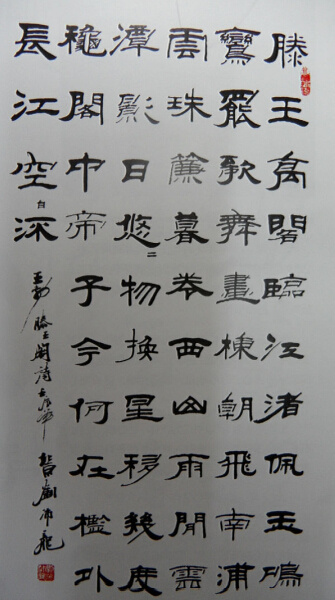 滕王高閣臨江渚佩玉鳴
鸞罷歌舞畫棟朝飛南浦
雲珠簾暮卷西山雨閒雲
潭影日悠二物換星移幾度
穐閣中帝子今何在檻外
長江空自流
王勃滕王閣詩